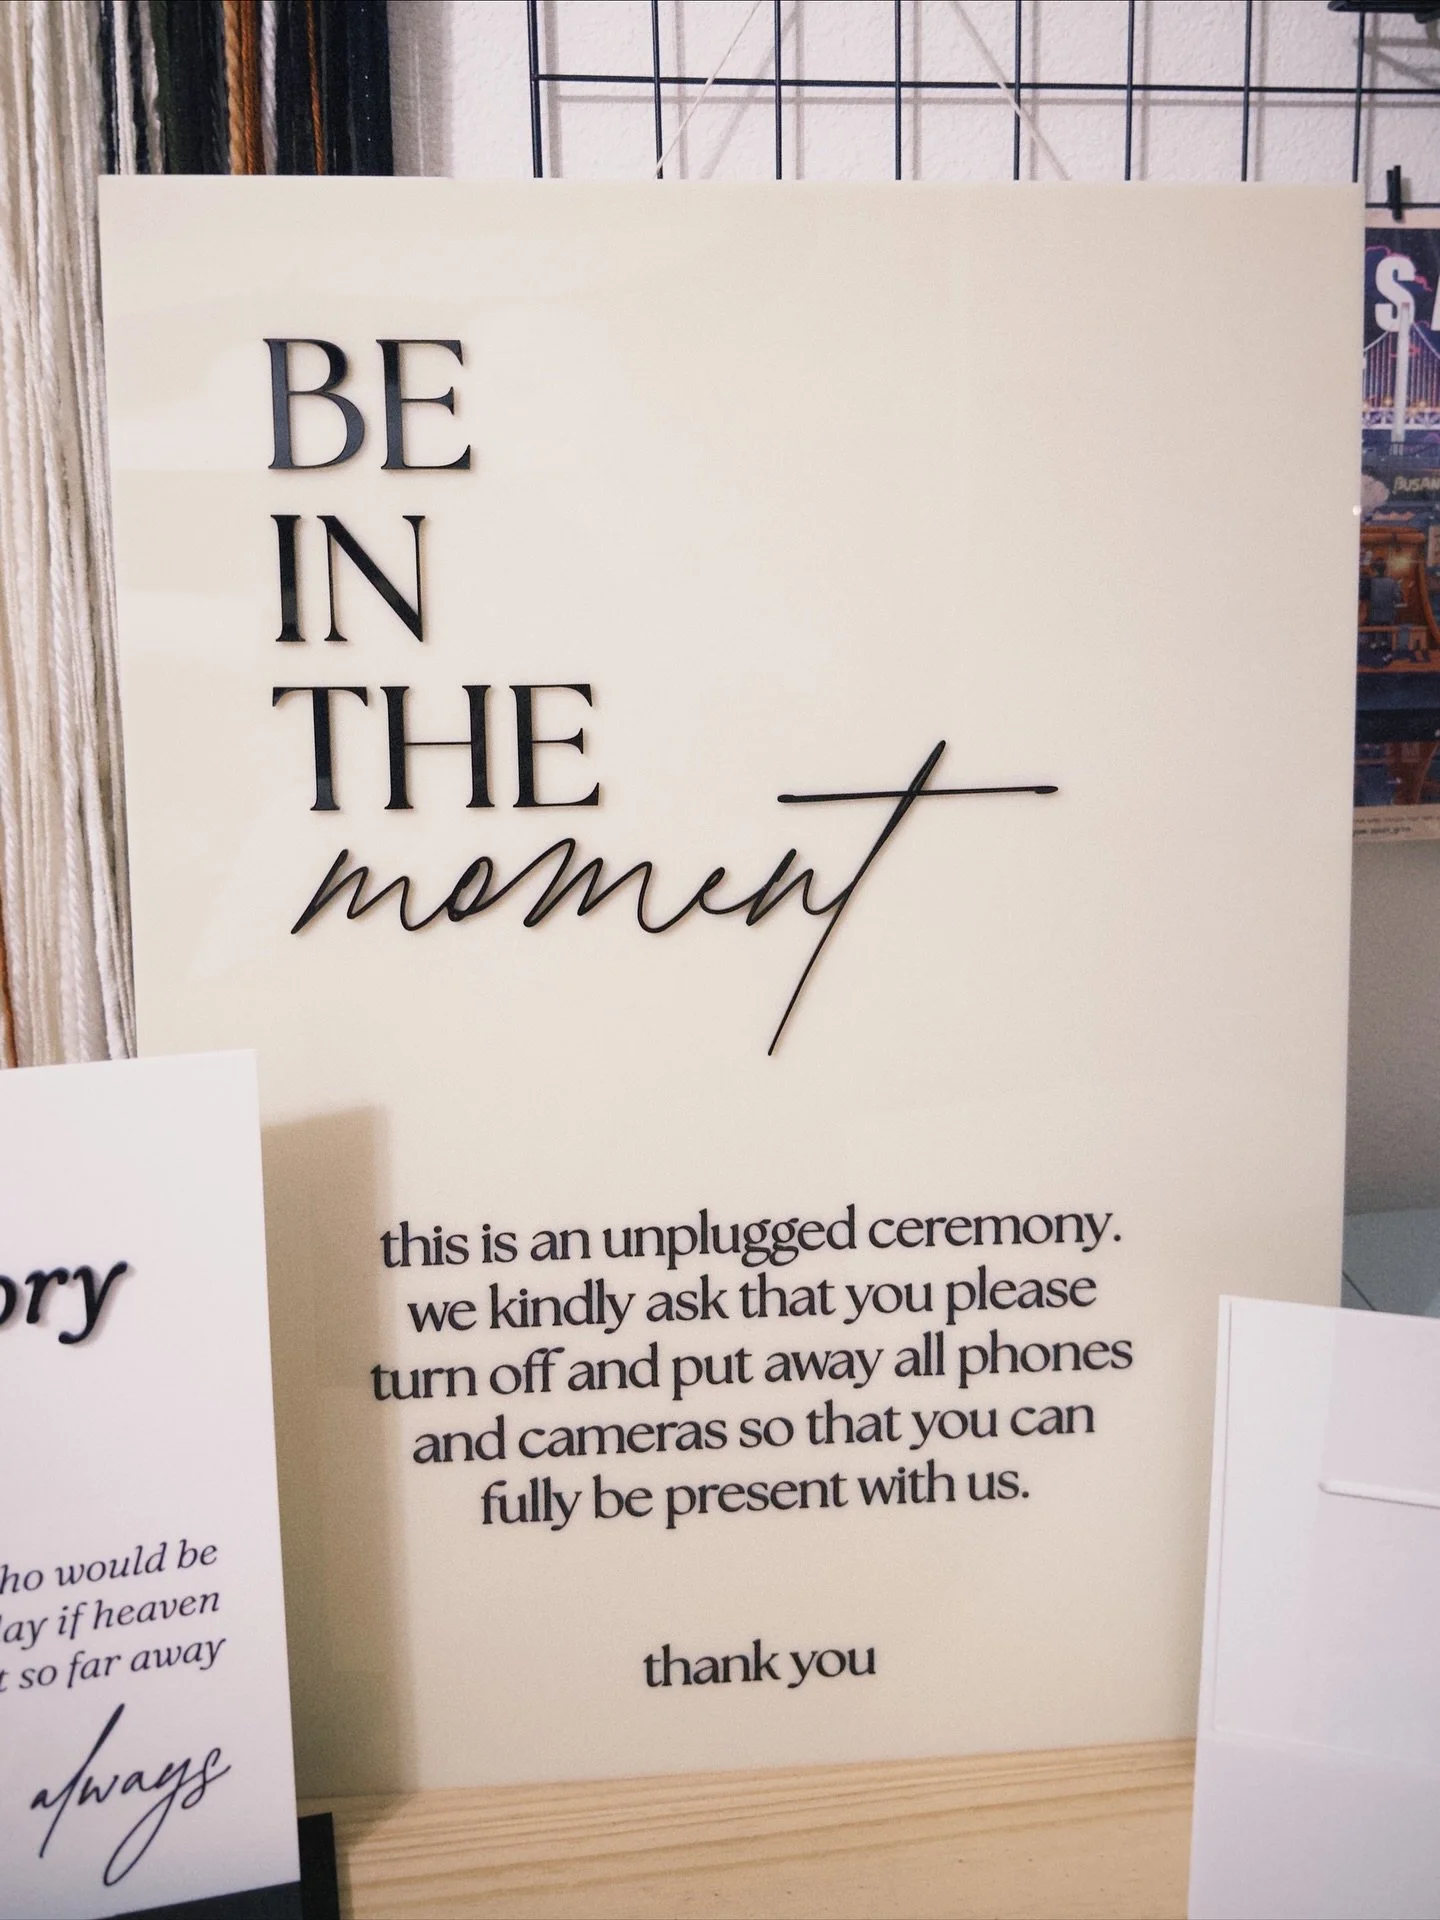 BE
IN
THE
moment
this is an unplugged ceremony.
we kindly ask that you please
turn off and put away all phones
and cameras so that you can
fully be present with us.
thank you
ory
ho would be
lay if heaven
t so far away
always
S
BUSAN